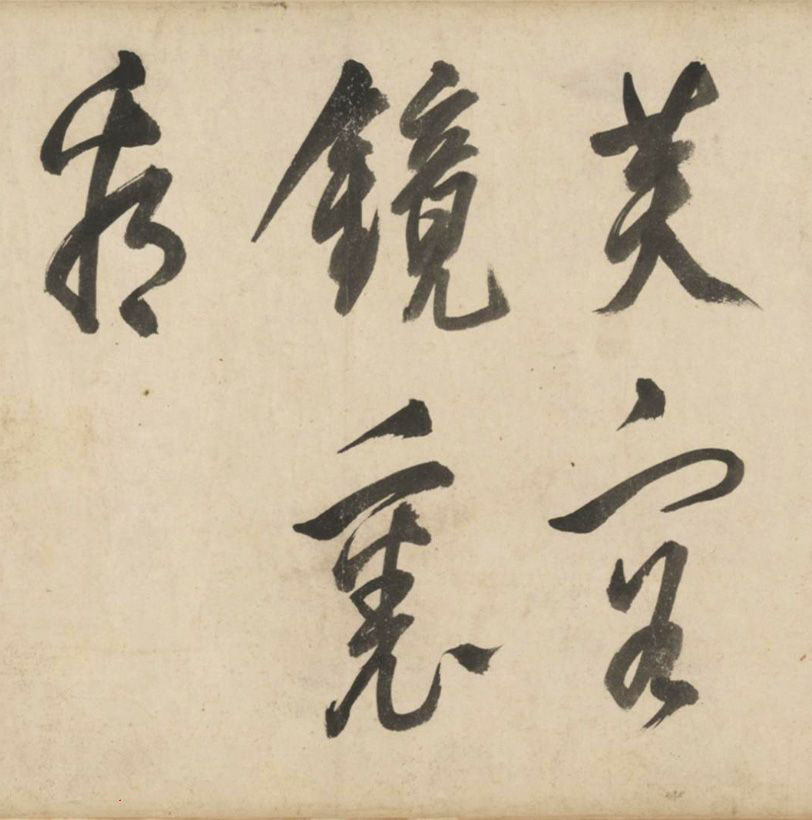 芙容
鏡裏